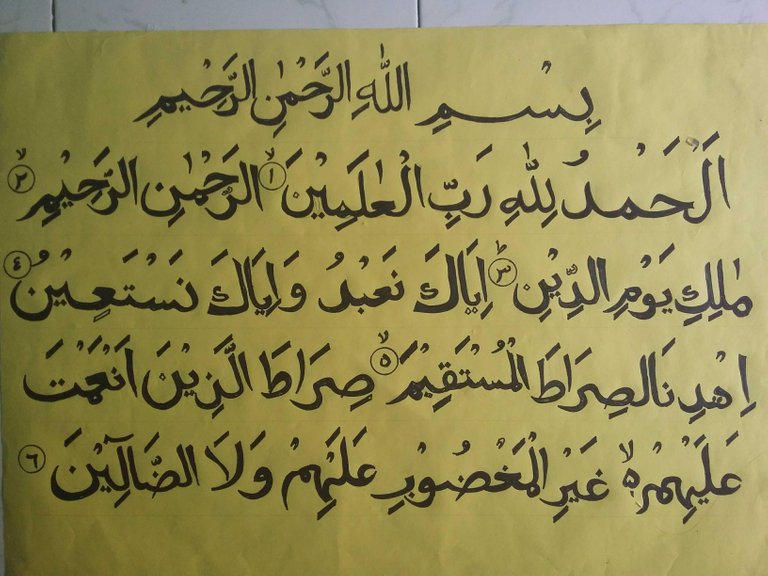 بِسْمِ اللّٰهِ الرَّحْمٰنِ الرَّحِيْمِ
اَلْحَمْدُ لِلّٰهِ رَبِّ الْعٰلَمِيْنَ ۙ١ الرَّحْمٰنِ الرَّحِيْمِ ۙ٢
مٰلِكِ يَوْمِ الدِّيْنِ ؕ٣ اِيَّاكَ نَعْبُدُ وَاِيَّاكَ نَسْتَعِيْنُ ؕ٤
اِهْدِنَا الصِرَاطَ الْمُسْتَقِيْمَ ۙ٥ صِرَاطَ الَّذِيْنَ اَنْعَمْتَ
عَلَيْهِمْ ۙ۵ غَيْرِ الْمَغْضُوْبِ عَلَيْهِمْ وَلَا الضَّآلِّيْنَ ٦